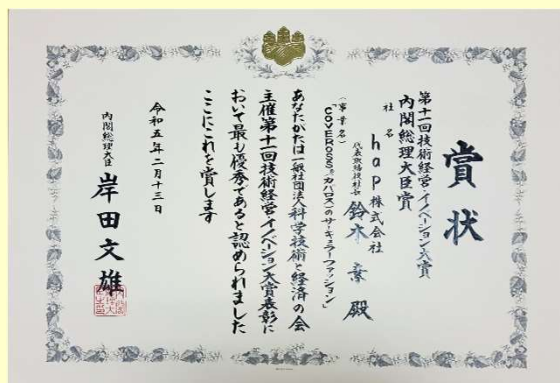 賞状
第十一回技術経営・イノベーション大賞
内閣総理大臣賞
社名
hap株式会社
代表取締役社長
鈴木 素 殿
（事業名）
「COVEROSS®（カバロス）のサーキュラーファッション」
あなたがたは一般社団法人科学技術と経済の会
主催第十一回技術経営・イノベーション大賞表彰に
おいて最も優秀であると認められました
ここにこれを賞します
令和五年二月十三日
内閣総理大臣
岸田文雄